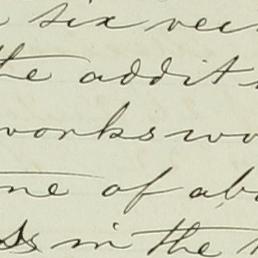 six
the addit
works wo
ne of ab
ss in the